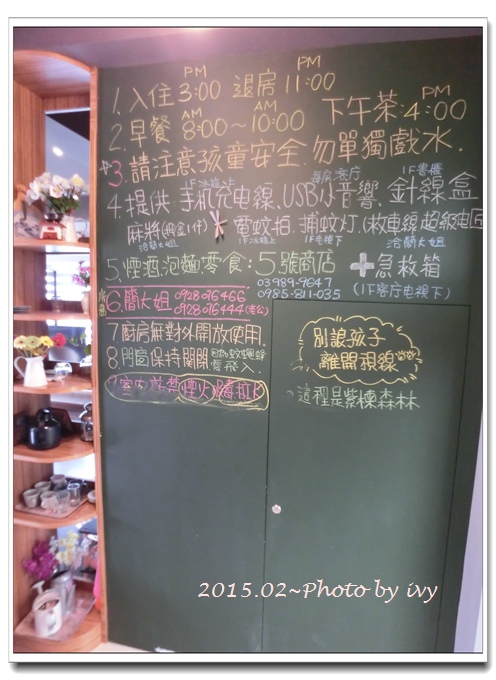 1. 入住 PM 3:00 退房 PM 11:00
2. 早餐 AM 8:00~AM 10:00 下午茶:PM 4:00
3. 請注意孩童安全.勿單獨戲水.
4. 提供 手机充电線.USB小音響.針線盒
1F冰箱上 1F書櫃
麻將(押金1仟) 電蚊拍.捕蚊灯.(救車線.超級电匠
洽蘭大姐 1F冰箱上 1F电視下 洽蘭大姐
5. 煙酒泡麵零食:5號商店 ➕急救箱
03989-9647
0985-811-035 (1F客厅电視下)
6. 簡大姐 0928076466
0928076444(老公)
7 廚房無對外開放使用.
8. 門窗保持關閉
愛飛入.
別讓孩子
離開視線
這裡是紫楝森林
2015.02~Photo by ivy